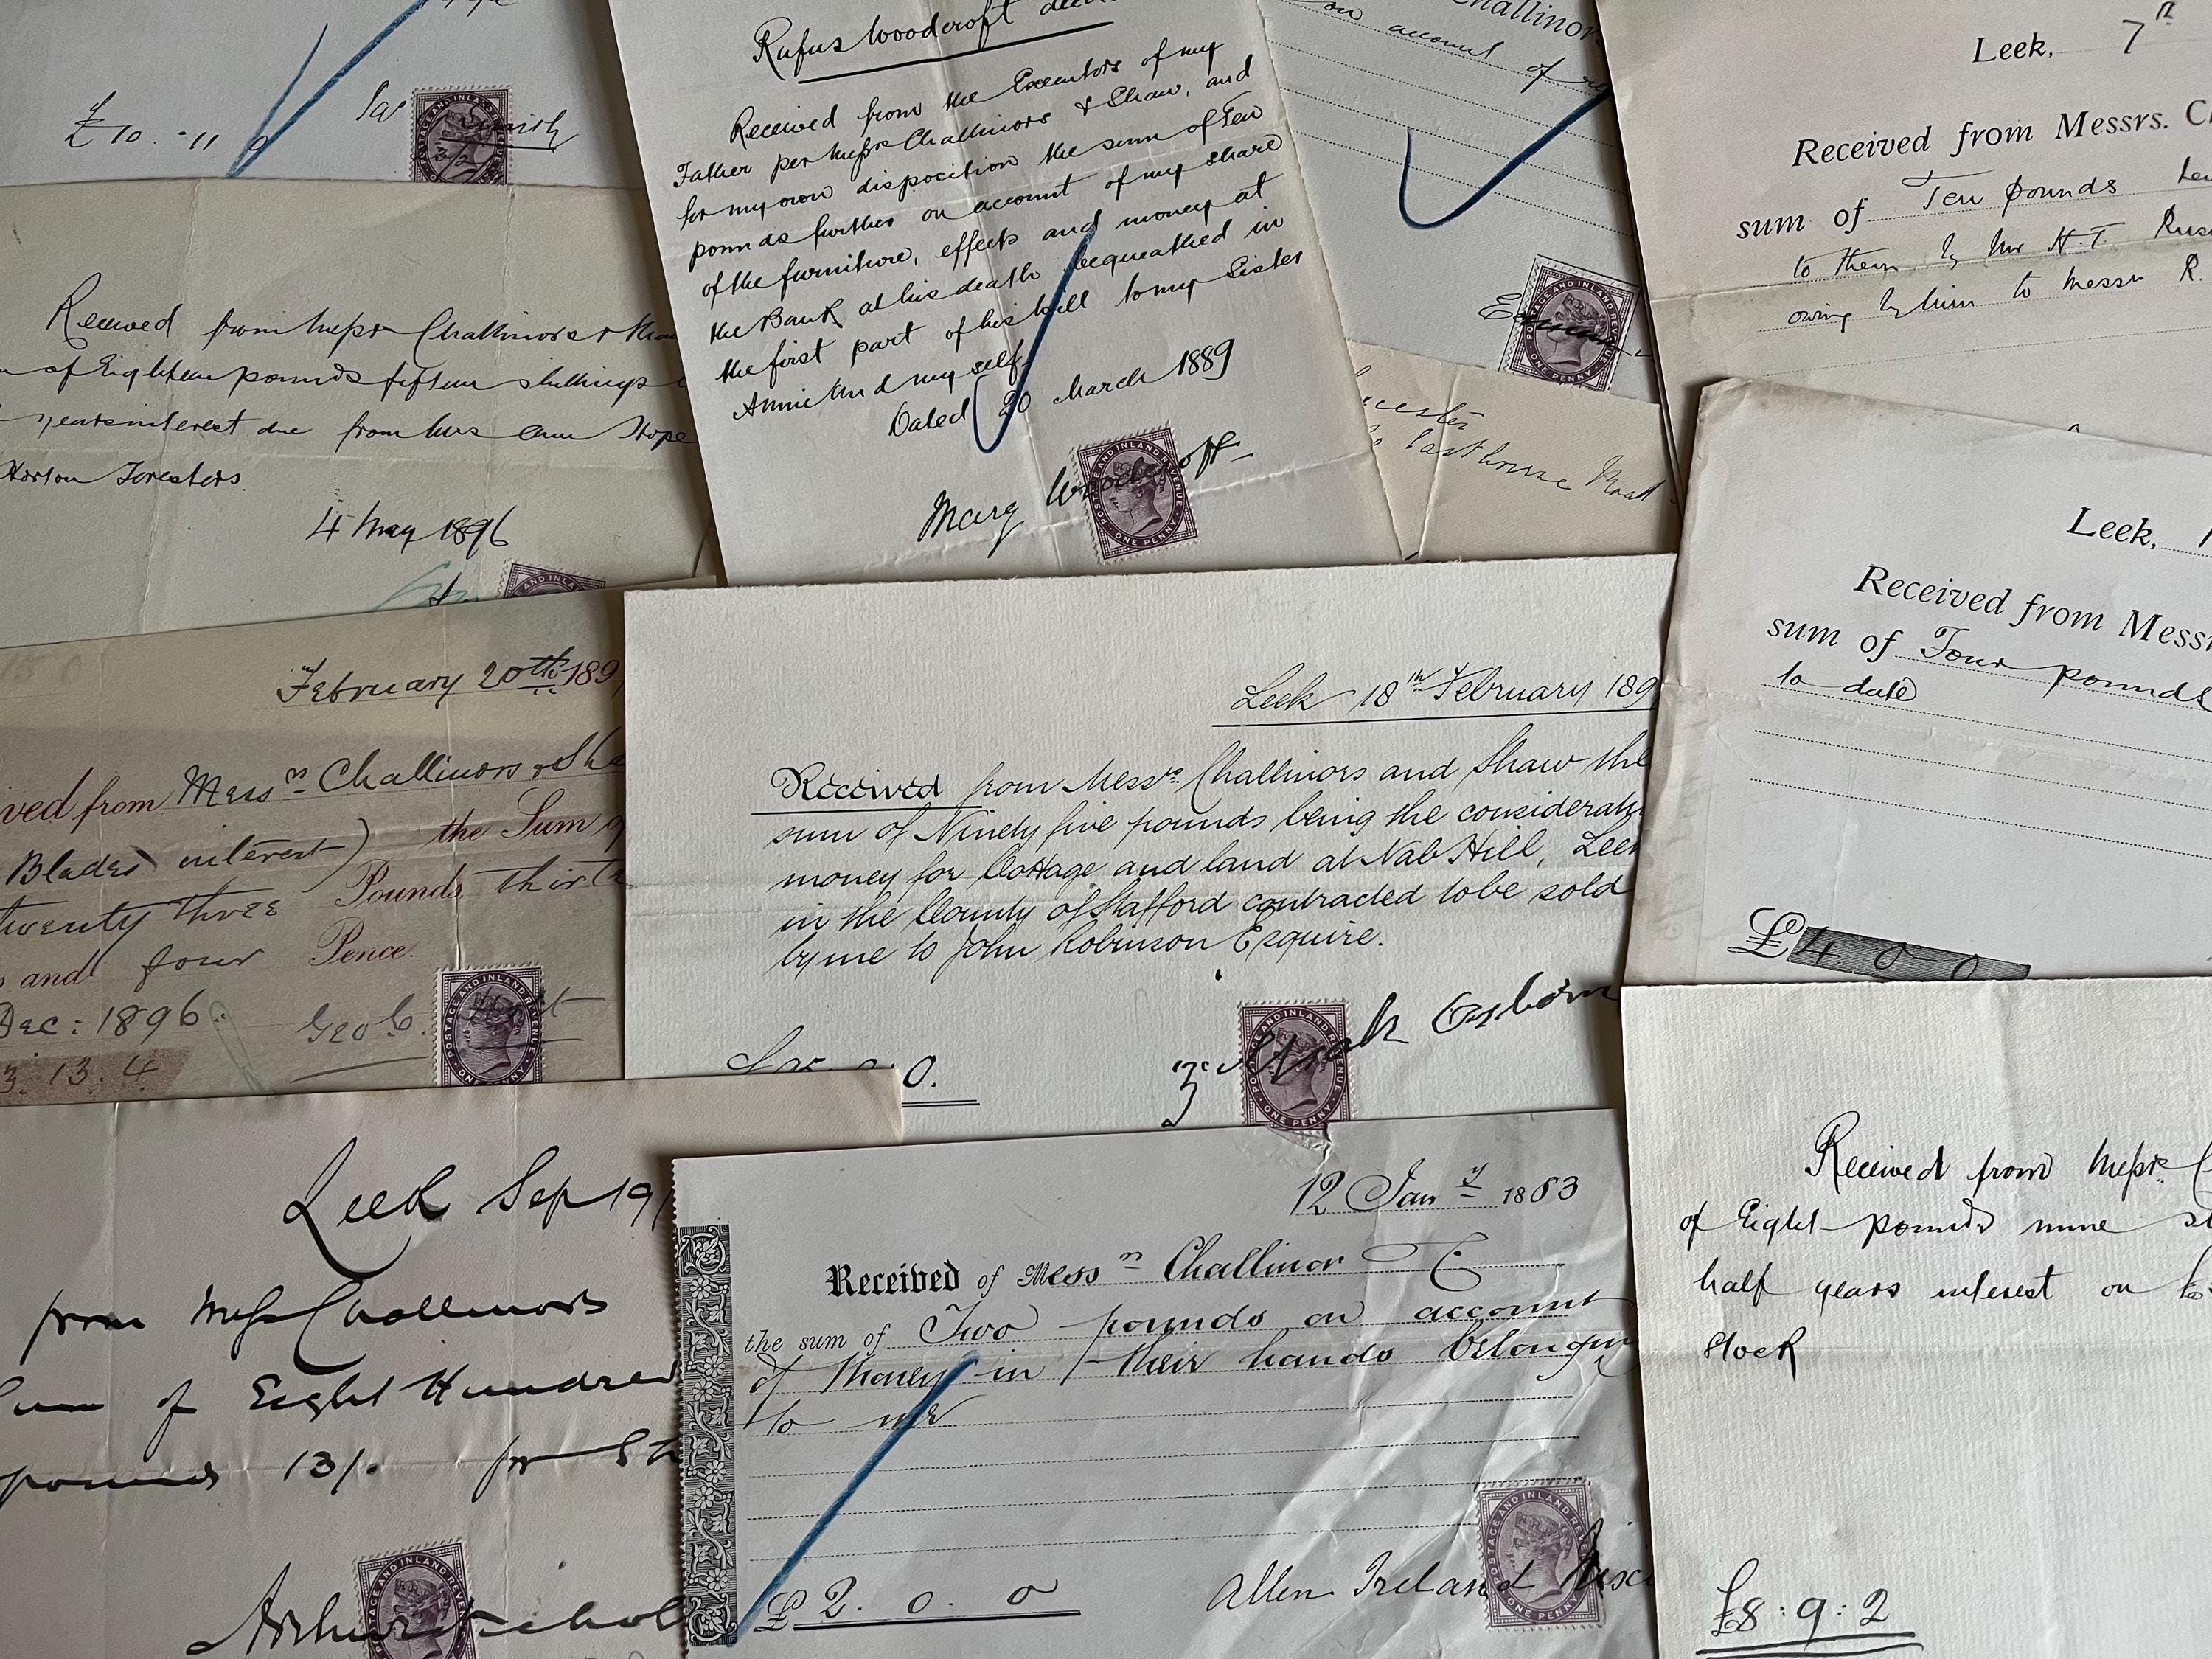 £10.-11.0
Rufus Woodcroft
Received from the Executors of my
Father per Messrs Challinors & Shaw, and
for my own disposition the sum of Ten
pounds further on account of my share
of the furniture, effects and money at
the Bank at his death bequeathed in
the first part of his Will to my Sister
Annie and myself
Dated 20 March 1889
Mary Woodcroft
POSTAGE AND INLAND REVENUE
ONE PENNY
Challinor
on account of
POSTAGE AND INLAND REVENUE
ONE PENNY
Leek, 7th
Received from Messrs. C
sum of Ten pounds
to them by Mr H. T. Rus
owing by him to Messrs R.
Received from Messrs Challinors & Sha
of Eighteen pounds fifteen shillings
years interest due from Mrs Ann Hope
Horton Foresters.
4 May 1896
AND INLA
Leek,
Received from Messr
sum of Four pounds
to date
£4 0 0
February 20th 189
ved from Messrs Challinors & Sha
Blades interest) the Sum o
twenty three Pounds, thirte
s and four Pence.
Dec: 1896.
Geo G.
3. 13. 4
POSTAGE AND INLAND REVENUE
Leek 18th February 189
Received from Messrs. Challinors and Shaw the
sum of Ninety five pounds being the considerati
money for Cottage and land at Nab Hill, Leek
in the County of Stafford contracted to be sold
by me to John Robinson Esquire.
Osborn
0.
ONE PENNY
Leek Sep 19
from Messrs Challinors
Sum of Eight Hundred
pounds 13/. for
Arthur Nichol
12 Jany 1883
Received of Messrs Challinor & Co
the sum of Two pounds on account
of money in their hands belongin
to me
£2. 0. 0
Allen Ireland
POSTAGE AND INLAND REVENUE
ONE PENNY
Received from Messrs. C
of Eight pounds nine s
half years interest on
Stock
£8:9:2